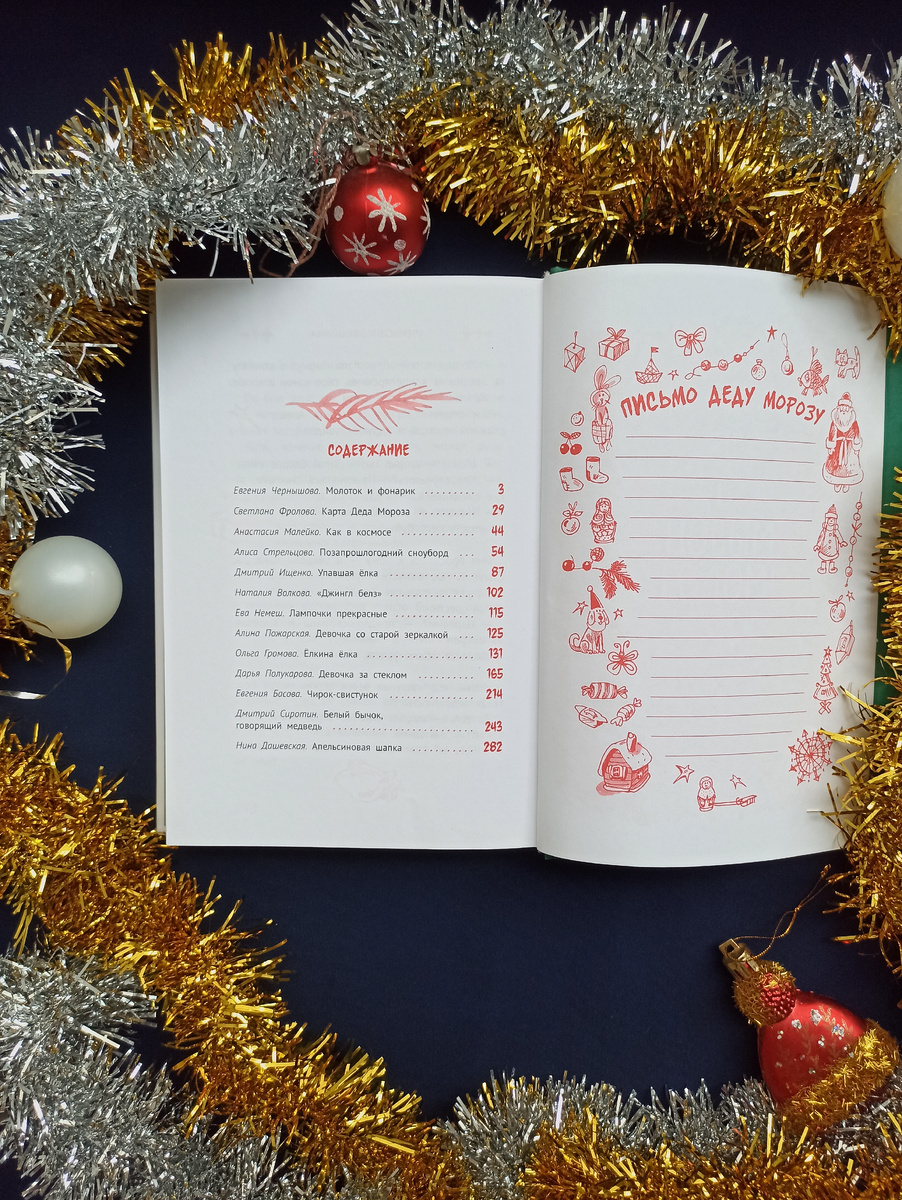 СОДЕРЖАНИЕ
Евгения Чернышова. Молоток и фонарик .......... 3
Светлана Фролова. Карта Деда Мороза .......... 29
Анастасия Малейко. Как в космосе .......... 44
Алиса Стрельцова. Позапрошлогодний сноуборд ... 54
Дмитрий Ищенко. Упавшая ёлка .......... 87
Наталия Волкова. «Джингл белз» .......... 102
Ева Немеш. Лампочки прекрасные .......... 115
Алина Пожарская. Девочка со старой зеркалкой ... 125
Ольга Громова. Ёлкина ёлка .......... 131
Дарья Полукарова. Девочка за стеклом .......... 165
Евгения Басова. Чирок-свистунок .......... 214
Дмитрий Сиротин. Белый бычок,
говорящий медведь .......... 243
Нина Дашевская. Апельсиновая шапка .......... 282
ПИСЬМО ДЕДУ МОРОЗУ